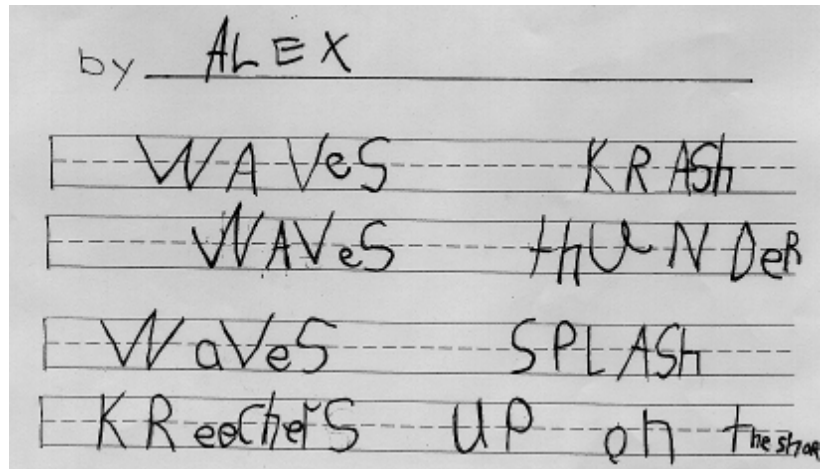 by ALEX
WAVeS KRASh
WAVeS thUNDeR
WaVeS SPLASh
KReeCherS UP on the shor